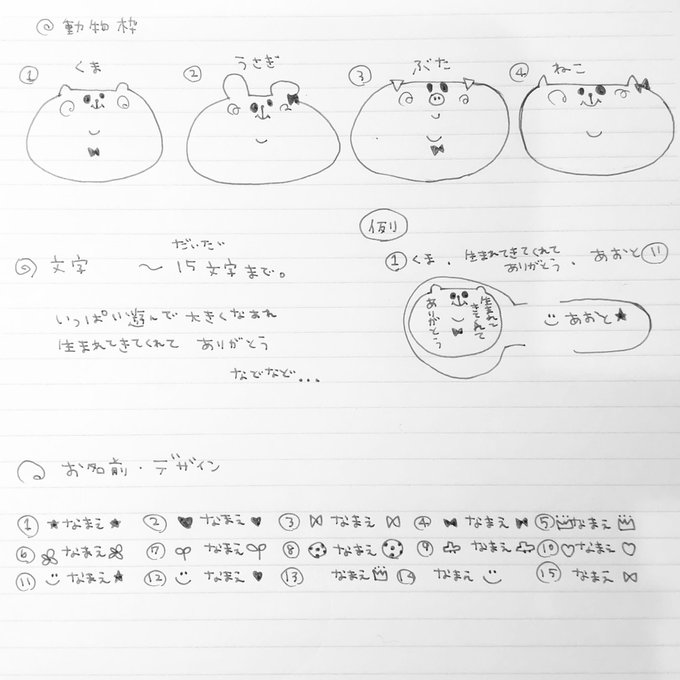 @ 動物枠
① くま ② うさぎ ③ ぶた ④ ねこ
例
① くま、生まれてきてくれてありがとう、あおと⑪
文字 〜15文字まで。
だいたい
いっぱい遊んで大きくなあれ
生まれてきてくれて ありがとう
なでなど...
生まれてきてくれて
ありがとう
あおと★
お名前・デザイン
① ★なまえ★ ② ♥なまえ♥ ③ なまえ ④ なまえ ⑤ なまえ
⑥ なまえ ⑦ なまえ ⑧ なまえ ⑨ なまえ ⑩ ♡なまえ♡
⑪ なまえ★ ⑫ なまえ♥ ⑬ なまえ ⑭ なまえ ⑮ なまえ